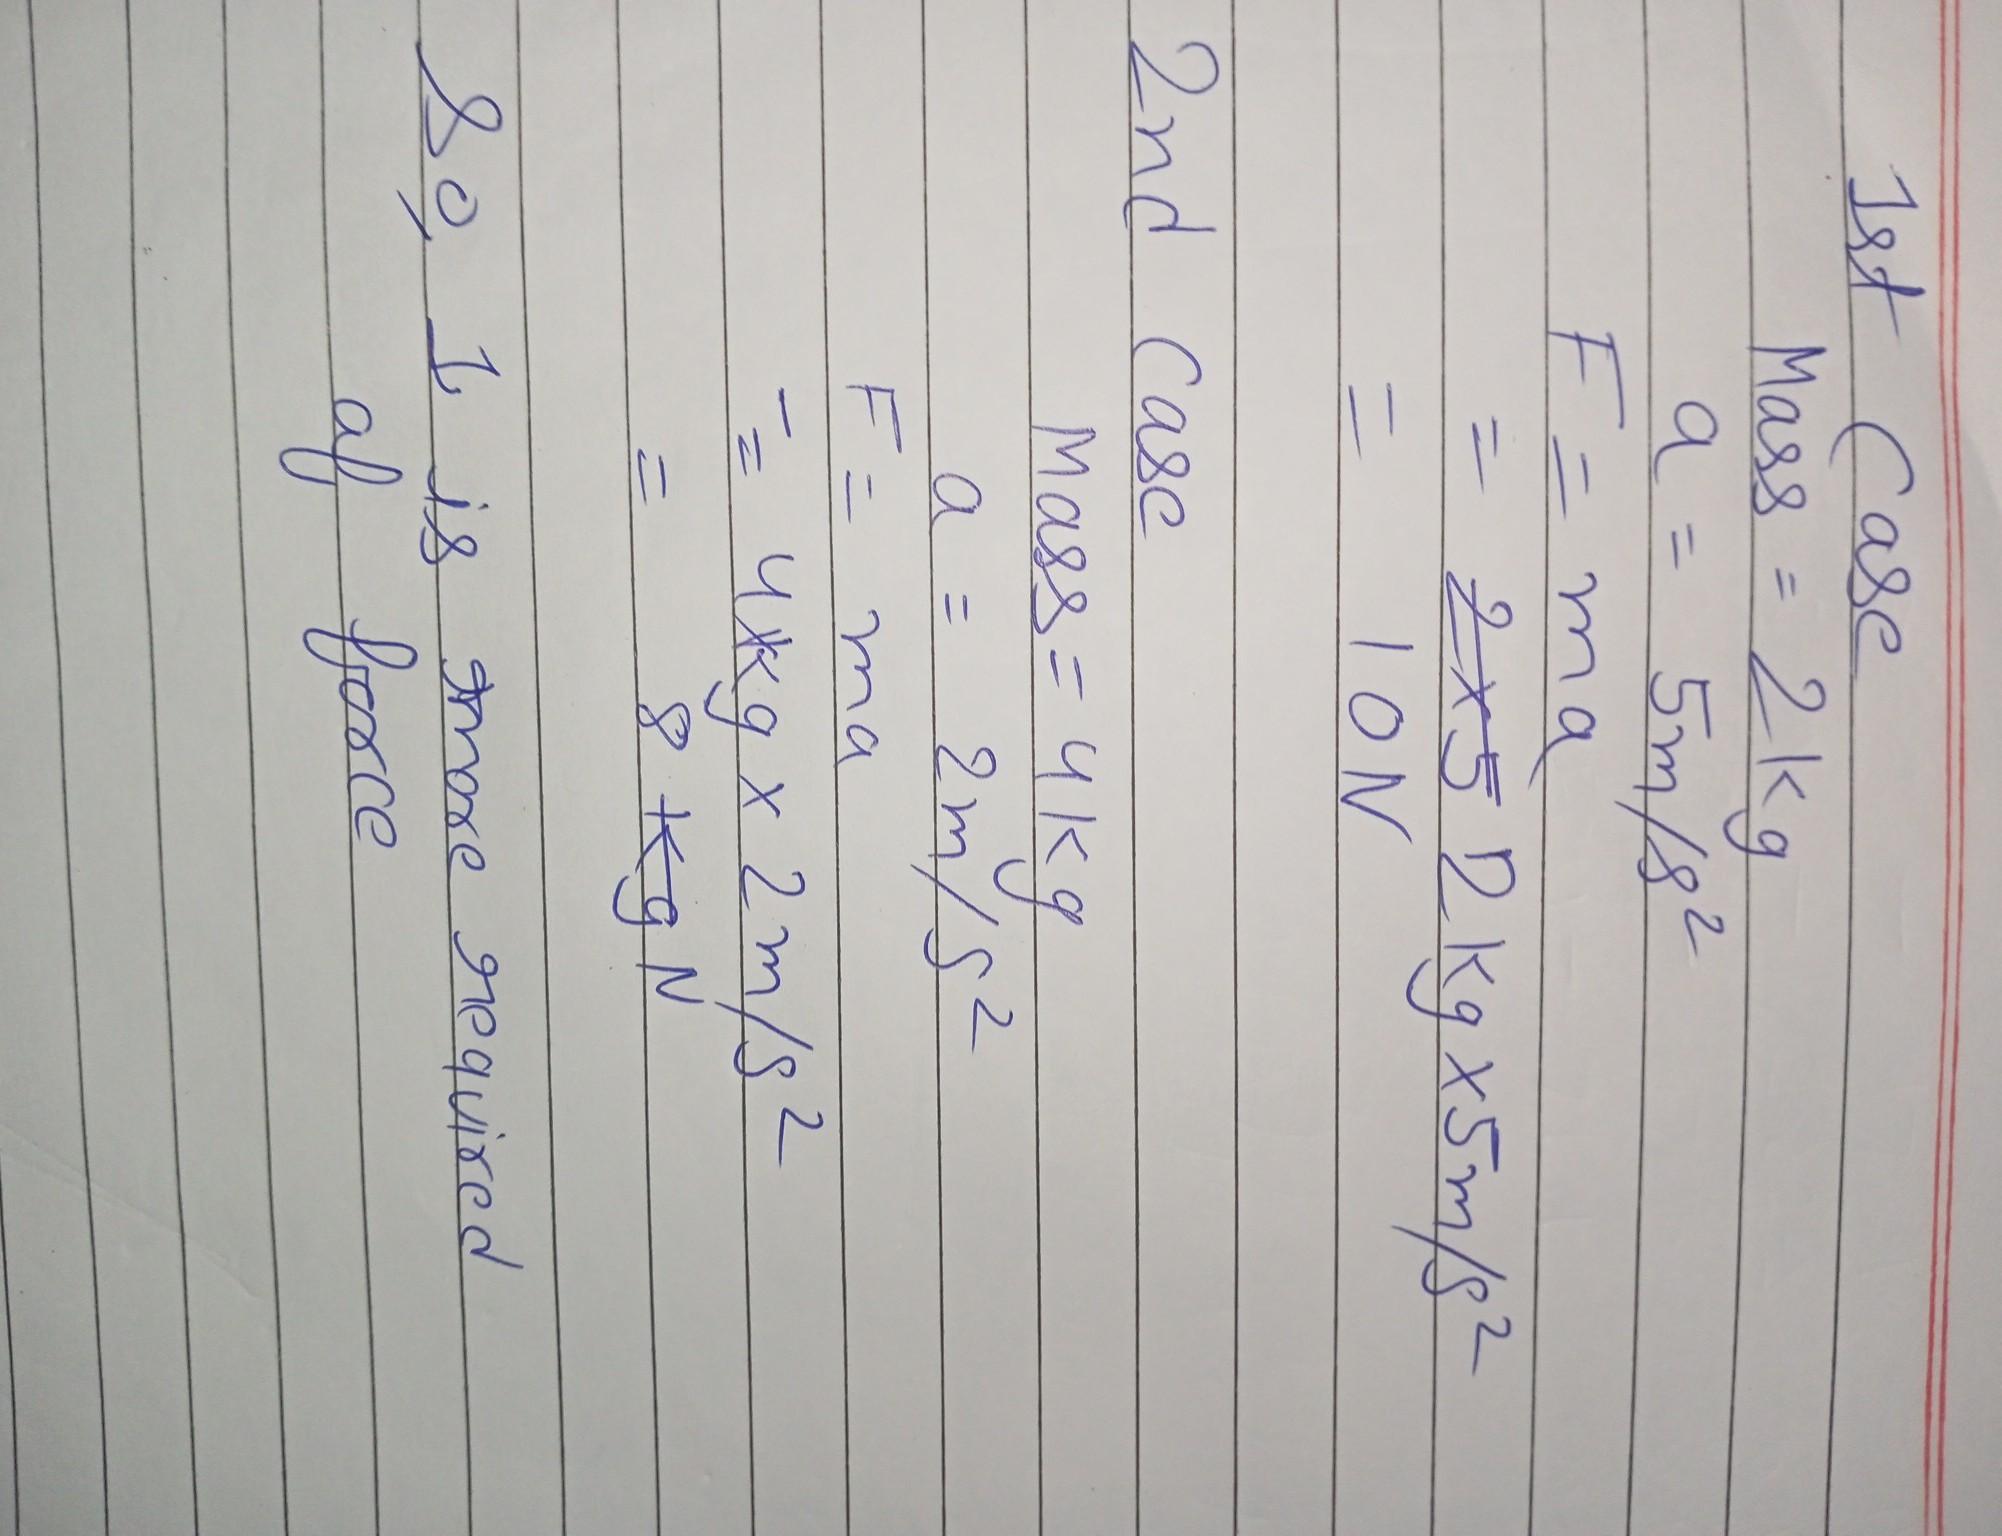 1st Case
Mass = 2kg
a = 5m/s²
F = ma
= 2x5 2kg x 5m/s²
= 10N
2nd Case
Mass = 4kg
a = 2m/s²
F = ma
= 4kg x 2m/s²
= 8 kg N
So, 1 is more required
of force